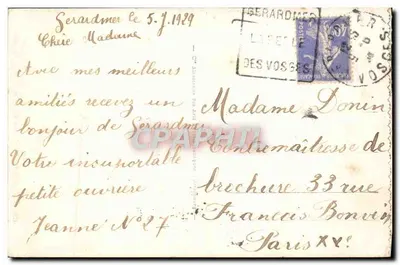 Gerardmer le 5.7.1929
Chère Madame
Avec mes meilleurs
amitiés recevez un
bonjour de Gérardmer
Votre insuportable
petite ouvrière
Jeanne No 27
GERARDMER
LA PERLE
DES VOSGES
VOSGES
Madame Donin
Contremaîtresse de
brochure 33 rue
François Bonvin
Paris XVe